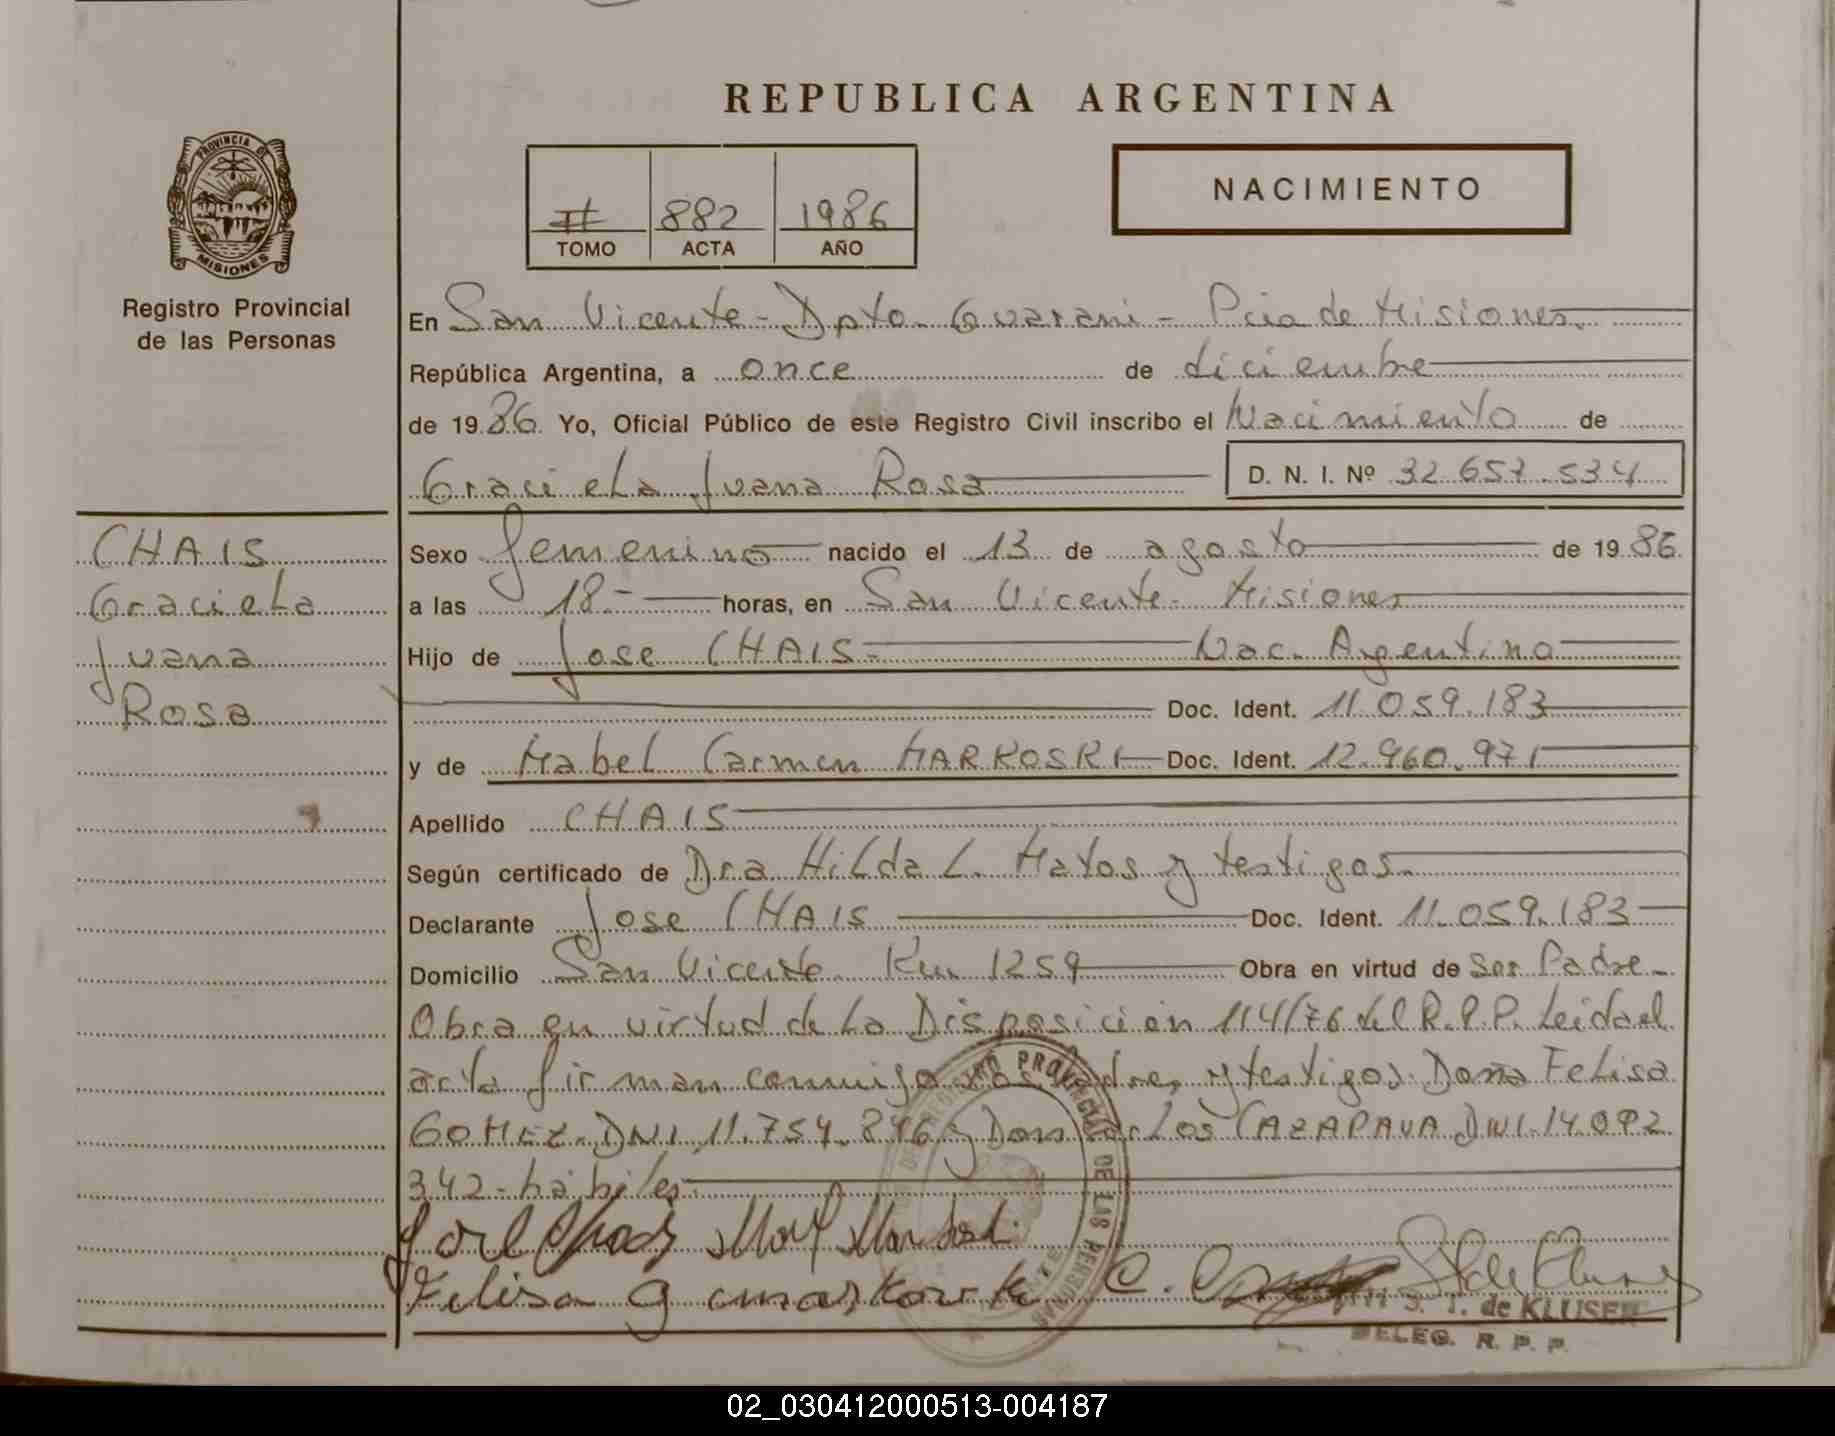 REPUBLICA ARGENTINA
PROVINCIA DE MISIONES
Registro Provincial
de las Personas
II 882 1986
TOMO ACTA AÑO
NACIMIENTO
En San Vicente - Dpto. Guarani - Pcia de Misiones.
República Argentina, a once de diciembre
de 1986 Yo, Oficial Público de este Registro Civil inscribo el Nacimiento de
Graciela Juana Rosa D. N. I. Nº 32.657.534
CHAIS
Graciela
Juana
Rosa
Sexo femenino nacido el 13 de agosto de 1986
a las 18.- horas, en San Vicente - Misiones
Hijo de Jose CHAIS - Nac. Argentina
Doc. Ident. 11.059.183
y de Mabel Carmen MARKOSKI Doc. Ident. 12.960.971
Apellido CHAIS
Según certificado de Dra Hilda L. Matos y testigos.
Declarante Jose CHAIS Doc. Ident. 11.059.183
Domicilio San Vicente Km 1259 Obra en virtud de Ser Padre -
Obra en virtud de la Disposición 114/76 del R.P.P. Leida el
acta firman conmigo los Padres y testigos Doña Felisa
GOMEZ. DNI. 11.754.846 y Don Carlos CAZAPAVA DNI. 14.092
342 - hábiles.
REGISTRO PROVINCIAL DE LAS PERSONAS
Felisa G
de KLUSER
DELEG. R. P. P.
02_030412000513-004187